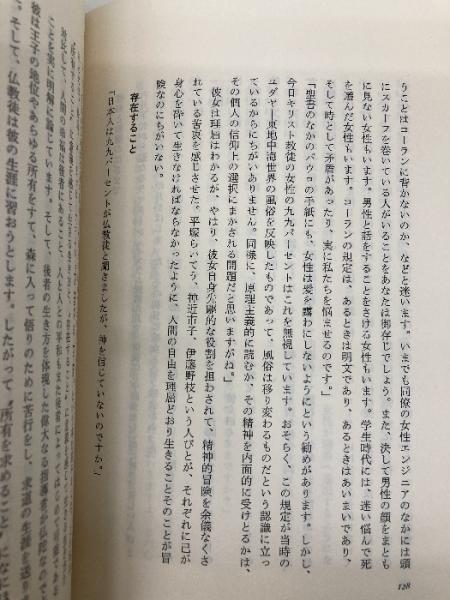 うことはコーランに背かないのか、などと迷います。いまでも同僚の女性エンジニアのなかには頭
にスカーフを巻いている人がいることをあなたは御存じでしょう。また、決して男性の顔をまとも
に見ない女性もいます。男性と話をすることをさける女性もいます。学生時代には、迷い悩んで死
を選んだ女性もいます。コーランの規定は、あるときは明文であり、あるときはあいまいであり、
そして時として矛盾があったり、実に私たちを悩ませるのです。」
「聖書のなかのパウロの手紙にも、女性は髪を露わにしないようにという勧めがあります。しかし、
今日キリスト教徒の女性の九九パーセントはこれを無視しています。おそらく、この規定が当時の
ユダヤ＝東地中海世界の風俗を反映したものであって、風俗は移り変わるものだという認識に立っ
ているからにちがいありません。同様に、原理主義的に読むか、その精神を内面的に受けとるかは、
その個人の信仰上の選択にまかされる問題だと思いますがね。」
彼女は理屈はわかるが、やはり、彼女自身先駆的な役割を担わされて、精神的冒険を余儀なくさ
れている苦衷を感じさせた。平塚らいてう、神近市子、伊藤野枝という人びとが、それぞれに己が
身心を砕いて生きなければならなかったように、人間の自由を理屈どおり生きることそのことが冒
険なのにちがいない。
存在すること
「日本人は九九パーセントが仏教徒と聞きましたが、神を信じていないのですか。」
128
ことを実に明確に論じています。そして、後者の生き方を体現した偉大なる指導者が仏陀なので
彼は王子の地位やあらゆる所有をすて、森に入って悟りのために苦行をし、求道の生涯を送り
す。そして、仏教徒は彼の生涯に習おうとします。したがって、「所有を求めること」になには